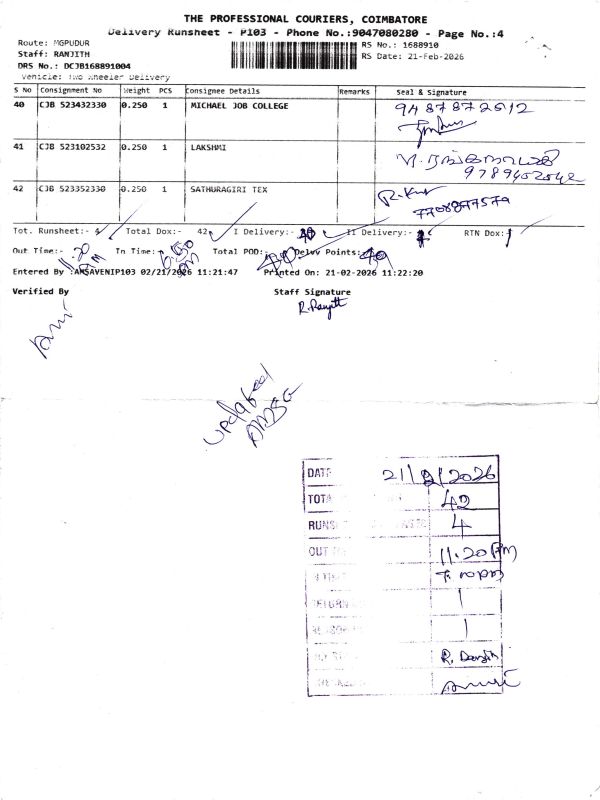 THE PROFESSIONAL COURIERS, COIMBATORE
Delivery Runsheet - P103 - Phone No.:9047080280 - Page No.:4
Route: MGPUDUR
RS No.: 1688910
Staff: RANJITH
RS Date: 21-Feb-2026
DRS No.: DCJB168891004
Vehicle: Two Wheeler Delivery
S No Consignment No Weight PCS Consignee Details Remarks Seal & Signature
40 CJB 523432330 0.250 1 MICHAEL JOB COLLEGE 9487872512
41 CJB 523102532 0.250 1 LAKSHMI
9789402542
42 CJB 523352330 0.250 1 SATHURAGIRI TEX R.Kum
7708877579
Tot. Runsheet:- 4 Total Dox:- 42 I Delivery:- 40 II Delivery:- RTN Dox:
Out Time:- 11.20 AM In Time:- 6.50 Total POD:- 40 Delvy Points:- 40
Entered By :AMSAVENIP103 02/21/2026 11:21:47 Printed On: 21-02-2026 11:22:20
Verified By
Staff Signature
R. Ranjith
updated
DATE 21/2/2026
TOTA 42
RUNS 4
OUT 11.20 AM
RETURN 1
1
R. Ranjith